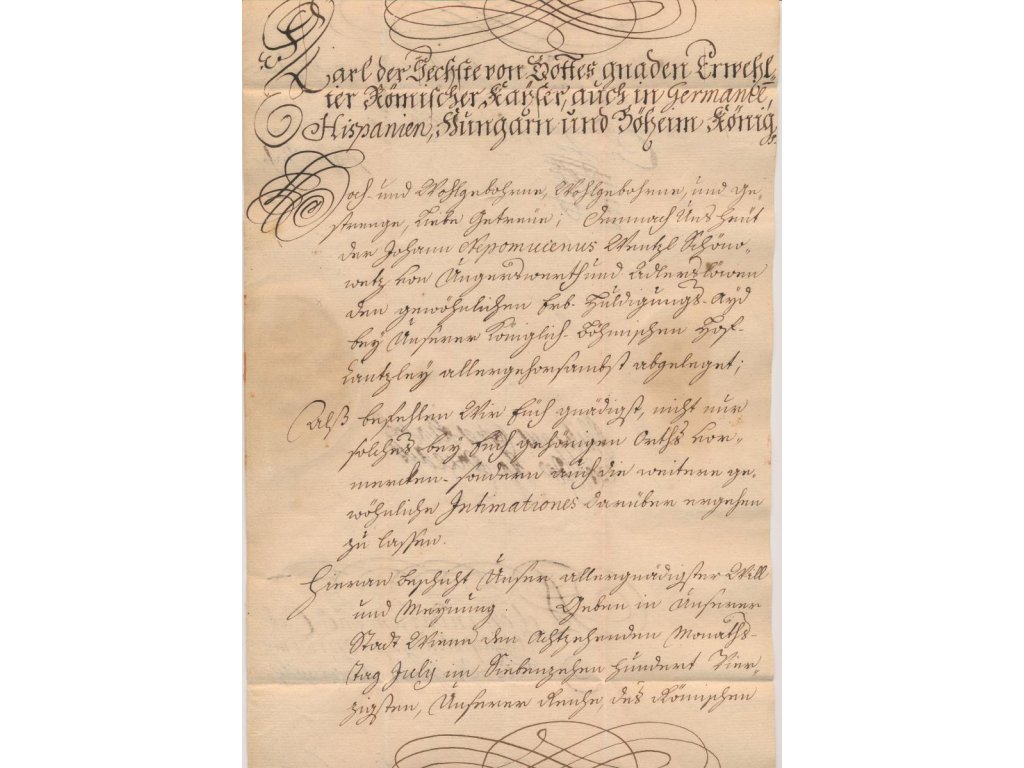 Carl der Sechste von Gottes gnaden Erwehl=
ter Römischer Kayser, auch in Germanie,
Hispanien, Hungarn und Böheim König
Hoch- und Wohlgebohrne, Wohlgebohrne, und ge-
strenge, Liebe Getreüe; Demnach Uns heüt
der Johann Nepomucenus Wentzl Schöno-
wetz von Ungerswerth und Adlerslöwen
den gewöhnlichen Erb-Huldigungs-Ayd
bey Unserer Königlich-Böhmischen Hof-
Cantzley allergehorsambst abgeleget;
Alß befehlen Wir Eüch gnädigst, nicht nur
solches bey Eüch gehörigen Orths vor-
mercken- sondern auch die weitere ge-
wöhnliche Intimationes darüber ergehen
zu lassen.
Hieran beschicht Unser allergnädigster Will
und Meÿnung. Geben in Unserer
Stadt Wienn den Achtzehenden Monaths-
tag Julÿ im Siebenzehen Hundert Vier-
zigsten, Unserer Reiche, des Römischen